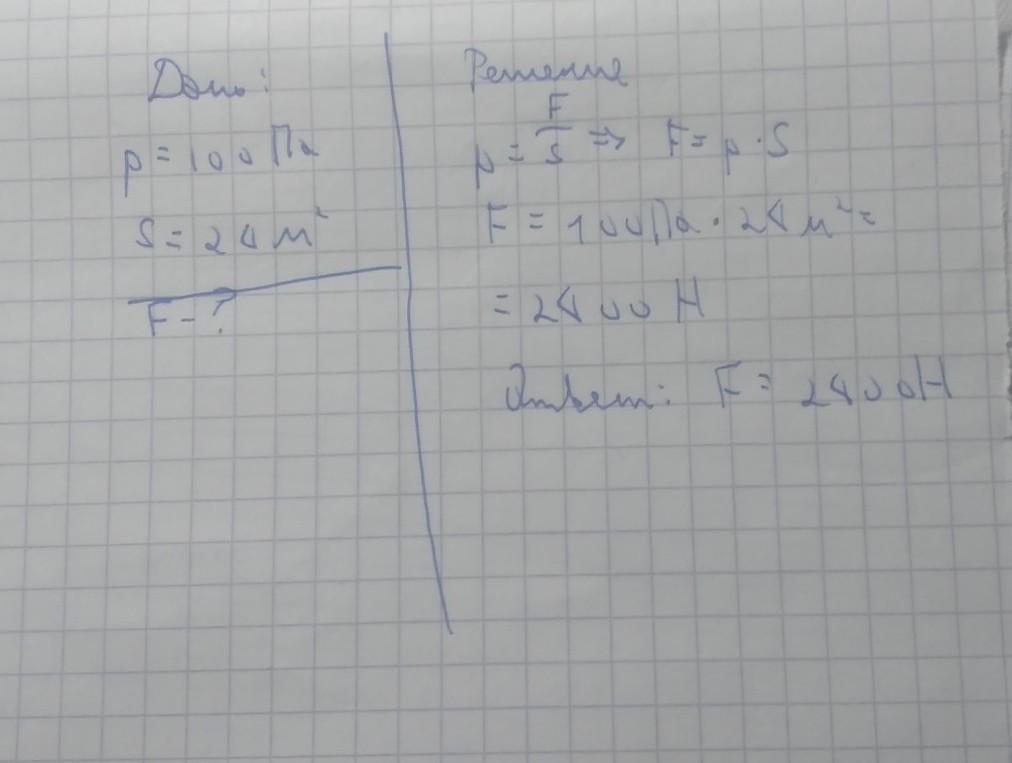 Дано:
p = 100 Па
S = 24 м²
F - ?
Решение
p = F/S ⇒ F = p · S
F = 100 Па · 24 м² =
= 2400 Н
Ответ: F = 2400 Н